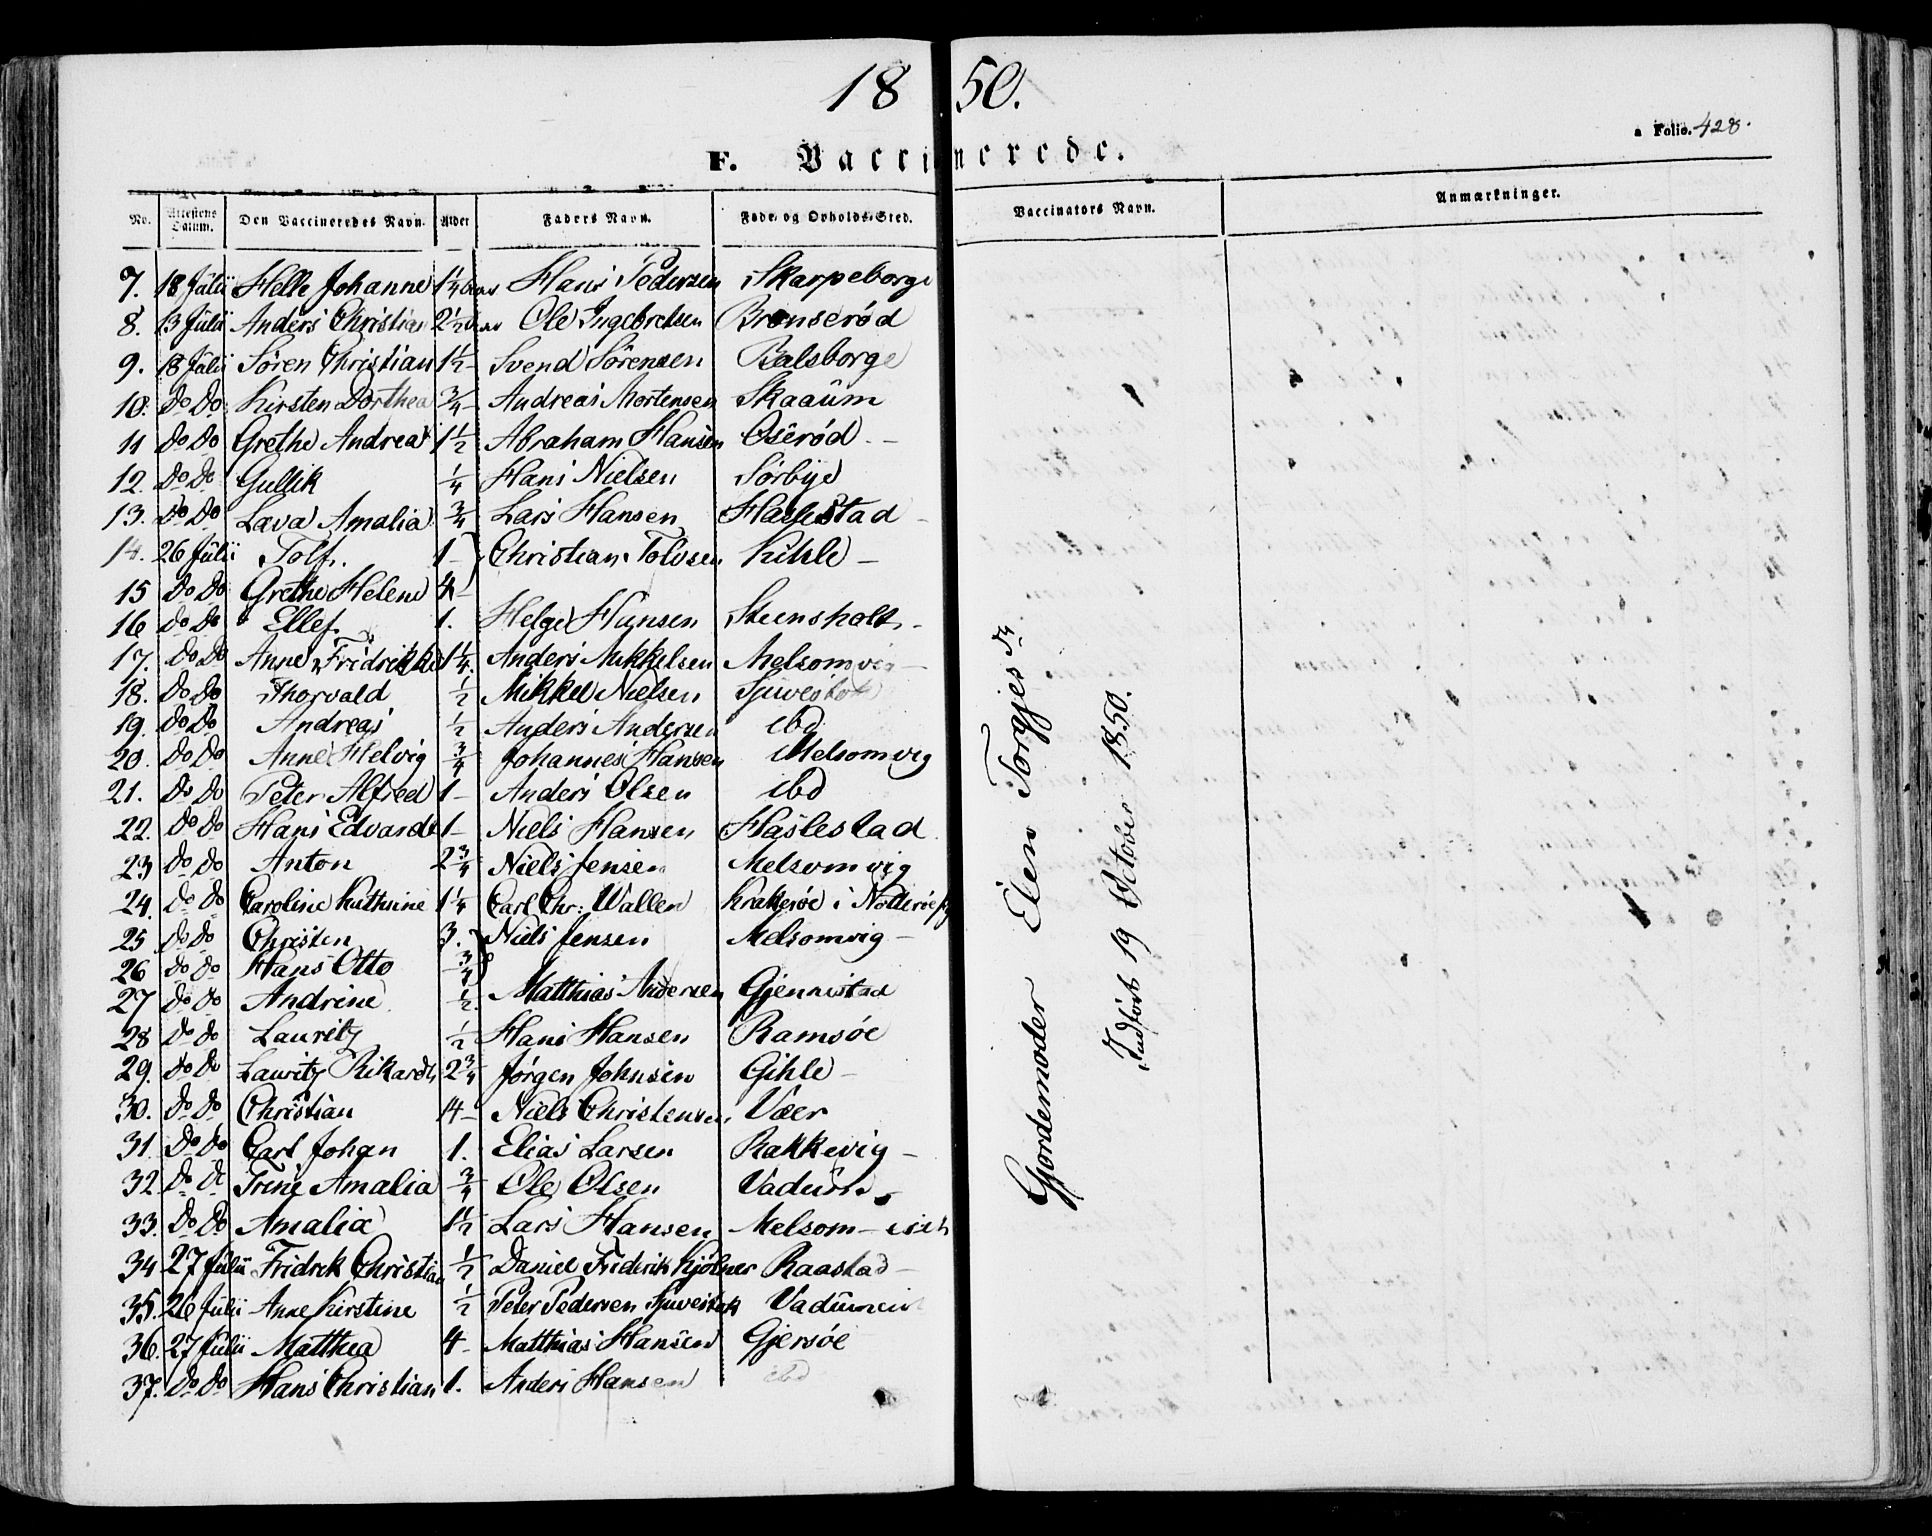 1850.
a Folio. 428.
F. Vaccinerede.
No. Attestens Datum. Den Vaccineredes Navn. Alder Faders Navn. Føde- og Opholds-Sted. Vaccinators Navn. Anmærkninger.
7. 18 Julii Helle Johanne 1 1/4 Hans Pedersen Skarpeborge
8. 13 Julii Anders Christian 2 1/2 Ole Ingebretsen Brønserød
9. 18 Julii Søren Christian 1 1/2 - Svend Sörensen Balsborge
10. Do Do Kirsten Dorthea 3/4 - Andreas Mortensen Skaaum
11 Do Do Grethe Andrea 1 1/2 Abraham Hansen Oserød -
12. Do Do Gullik 1/4 Hans Nielsen Sörbye
13. Do Do Lava Amalia 3/4 Lars Hansen Haslestad -
14. 26 Julii Tolf. 1 - Christian Tolvsen Kihle -
15 Do Do Grethe Helene 4 -
16 Do Do Ellef 1. Helge Hansen Steensholt -
17. Do Do Anne Fridrikke 1 1/4. Anders Mikkelsen Melsomvig -
18. Do Do Thorvald 1/2 Mikkel Nielsen
19. Do Do Andreas 1/2 Anders Andersen ibd
20. Do Do Anne Helvig 3/4 Johannes Hansen Melsomvig
21. Do Do Peter Alfred 1 - Anders Olsen ibd
22. Do Do Hans Edvard 1 - Niels Hansen Haslestad
23 Do Do Anton 2 3/4 Niels Jensen Melsomvig
24. Do Do Caroline Kathrine 1 1/4 Carl Chr: Wallen Krakerøe i Nøtterøe
25 Do Do Christen 3. Niels Jensen Melsomvig -
26 Do Do Hans Otto 3/4
27 Do Do Andrine 1/2 Matthias Andersen Gjennistad
28 Do Do Lauritz 1/2 Hans Hansen Ramsøe
29. Do Do Lauritz Rikard 2 3/4 Jørgen Johnsen Gihle -
30. Do Do Christian 4 - Niels Christensen Væer
31. Do Do Carl Johan 1. Elias Larsen Rakkevig -
32. Do Do Trine Amalia 3/4 Ole Olsen
33. Do Do Amalia 1 1/2 Lars Hansen Melsom -
34 27 Julii Fridrik Christian 1/2 Daniel Friderik Kjølner Raastad -
35. 26 Julii Anne Kirstine 1/2 Peter Pedersen
36. 27 Julii Matthea 4 - Matthias Hansen Gjersøe
37. Do Do Hans Christian 1. Anders Hansen ibd
Gjordemoder Elen Torgjesdr
Indført 19 October 1850.